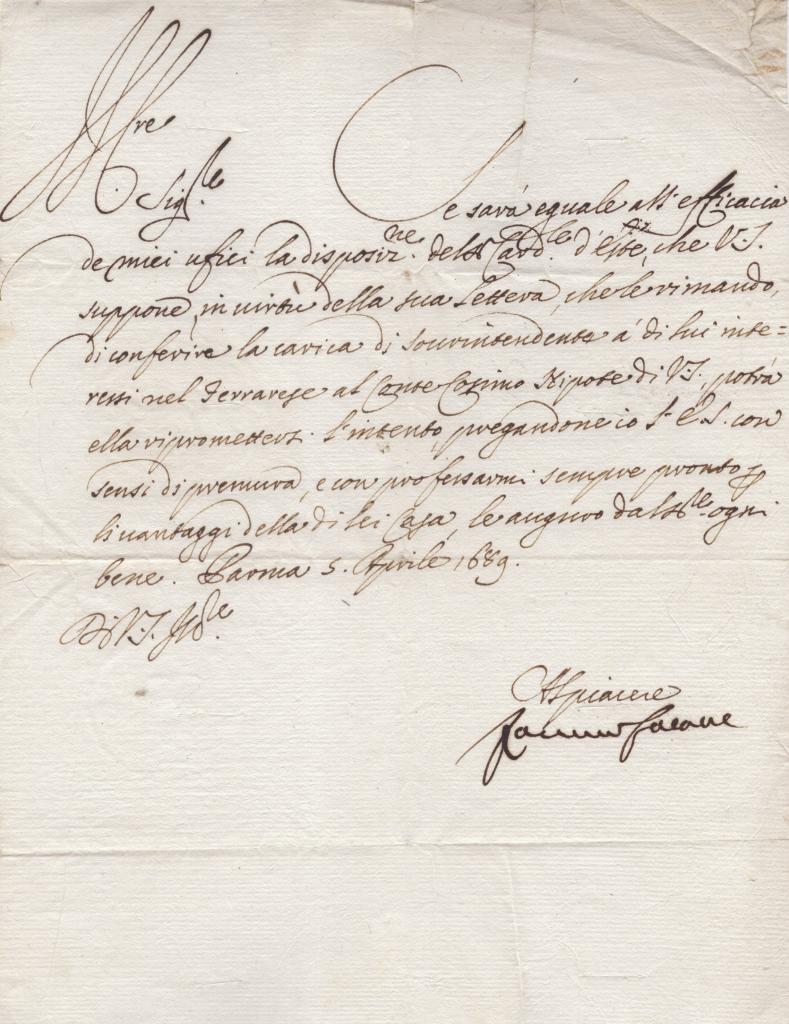 Ill.re
Sig.re
Se sarà eguale all'efficacia
de miei ufici la disposiz.ne del S. Card.le d'Este, che V.S.
suppone, in virtù della sua Lettera, che le rimando,
di conferire la carica di sourintendente a' di lui inte=
ressi nel Ferrarese al Conte Cosimo Nipote di V.S., potrà
ella ripromettersi l'intento, pregandone io S. E. con
sensi di premura, e con professarmi sempre pronto p
li uantaggi della di lei Casa, le auguro dal ogni
bene. Parma 5. Aprile 1689.
Di V.S.
Al piacere
Farnese